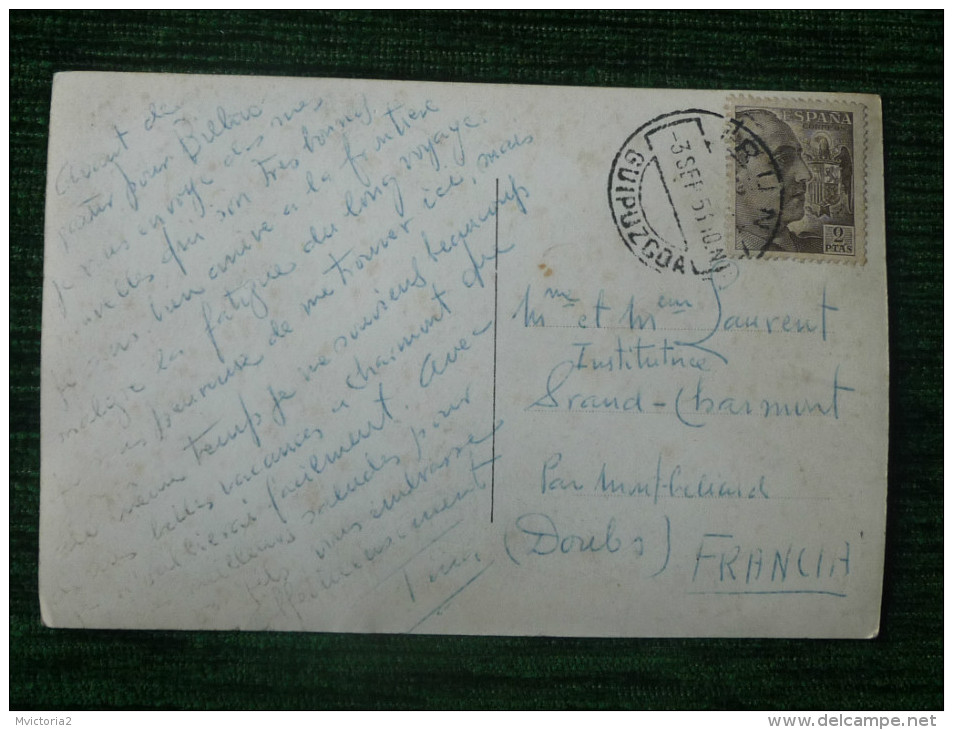 Avant de
partir pour Bilbao
je vous envoye des mes
nouvelles qui son très bonnes
bien arrivé a la frontière
malgré la fatigue du long voyage.
heureuse de me trouver ici, mais
même temps je me souviens beaucoup
belles vacances a chaimont que
facilment. Avec
meilleurs saludes pour
vous embrasse
ESPAÑA
2
PTAS
IRUN
-3 SEP 51 10.N
GUIPUZCOA
Mme et Mr Laurent
Institutrice
Grand-Charmont
Par Montbeliard
(Doubs)
FRANCIA
Mvictoria2
www.delcampe.net